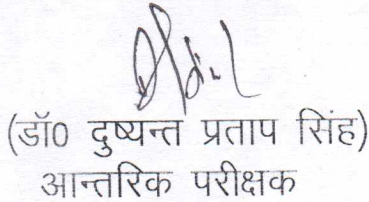 (डॉ0 दुष्यन्त प्रताप सिंह)
आन्तरिक परीक्षक